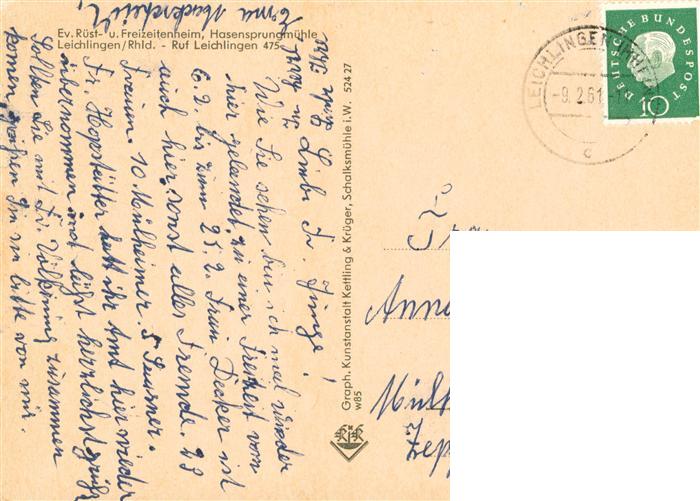 Ev. Rüst- u. Freizeitenheim, Hasensprungmühle
Leichlingen/Rhld. - Ruf Leichlingen 475
Liebe Fr. Junge!
Wie Sie sehen bin ich mal wieder
hier gelandet, zu einer Freizeit vom
6.2 bis zum 25.2. Frau Decker ist
auch hier sonst alles Fremde. 23
Frauen. 10 Mülheimer.
Fr. Hopstätter hatt ihr Amt hier wieder
übernommen und läßt herzlichst grüßen
Sollten Sie mit Fr. zusammen
kommen, grüßen Sie sie bitte von mir.
Erna
Graph. Kunstanstalt Kettling & Krüger, Schalksmühle i.W. 524 27
w85
K&K
LEICHLINGEN (RHEINL)
-9.2.61.-
c
DEUTSCHE BUNDESPOST
10
Frau
Anne
Mülh
Zepp